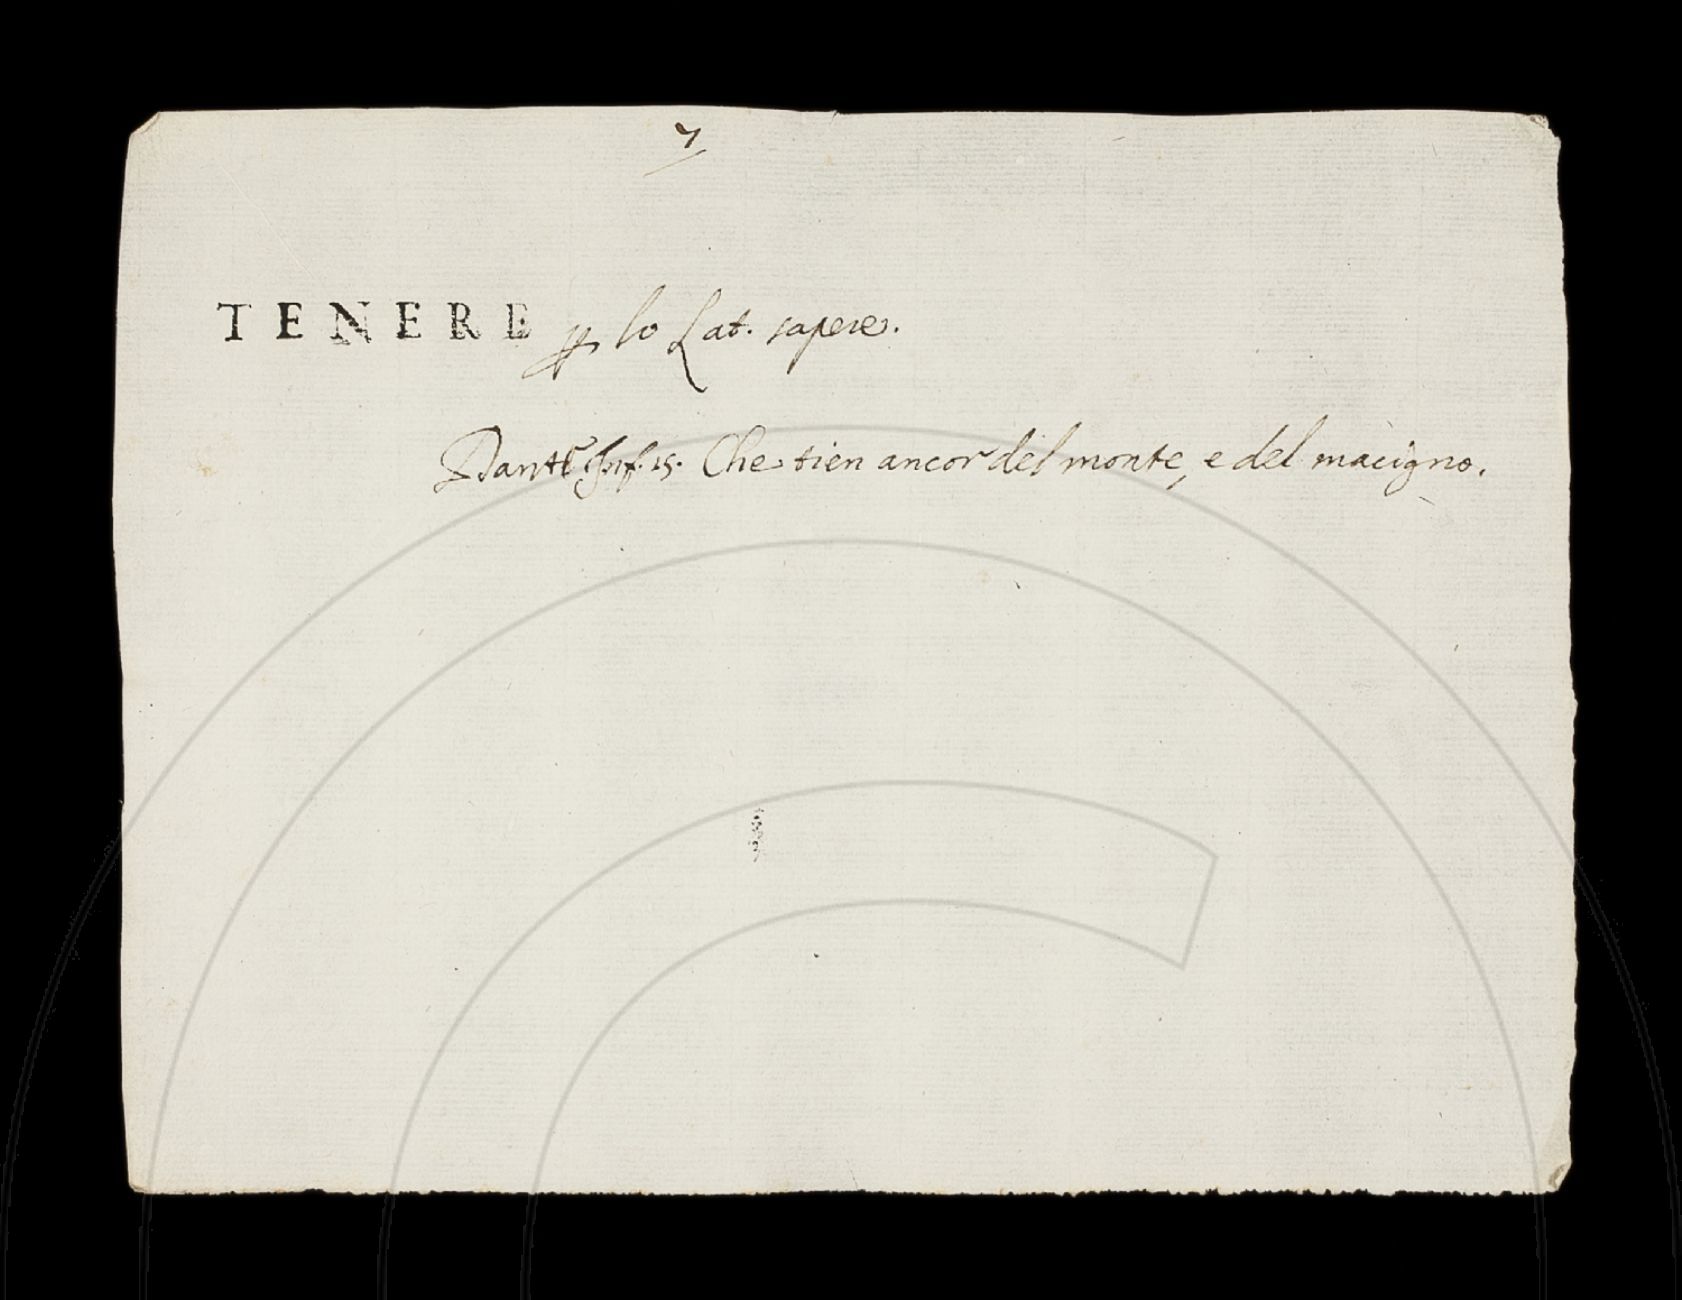 7
TENERE ꝑ lo Lat. sapere.
Dante Inf. 15. Che tien ancor del monte, e del macigno.